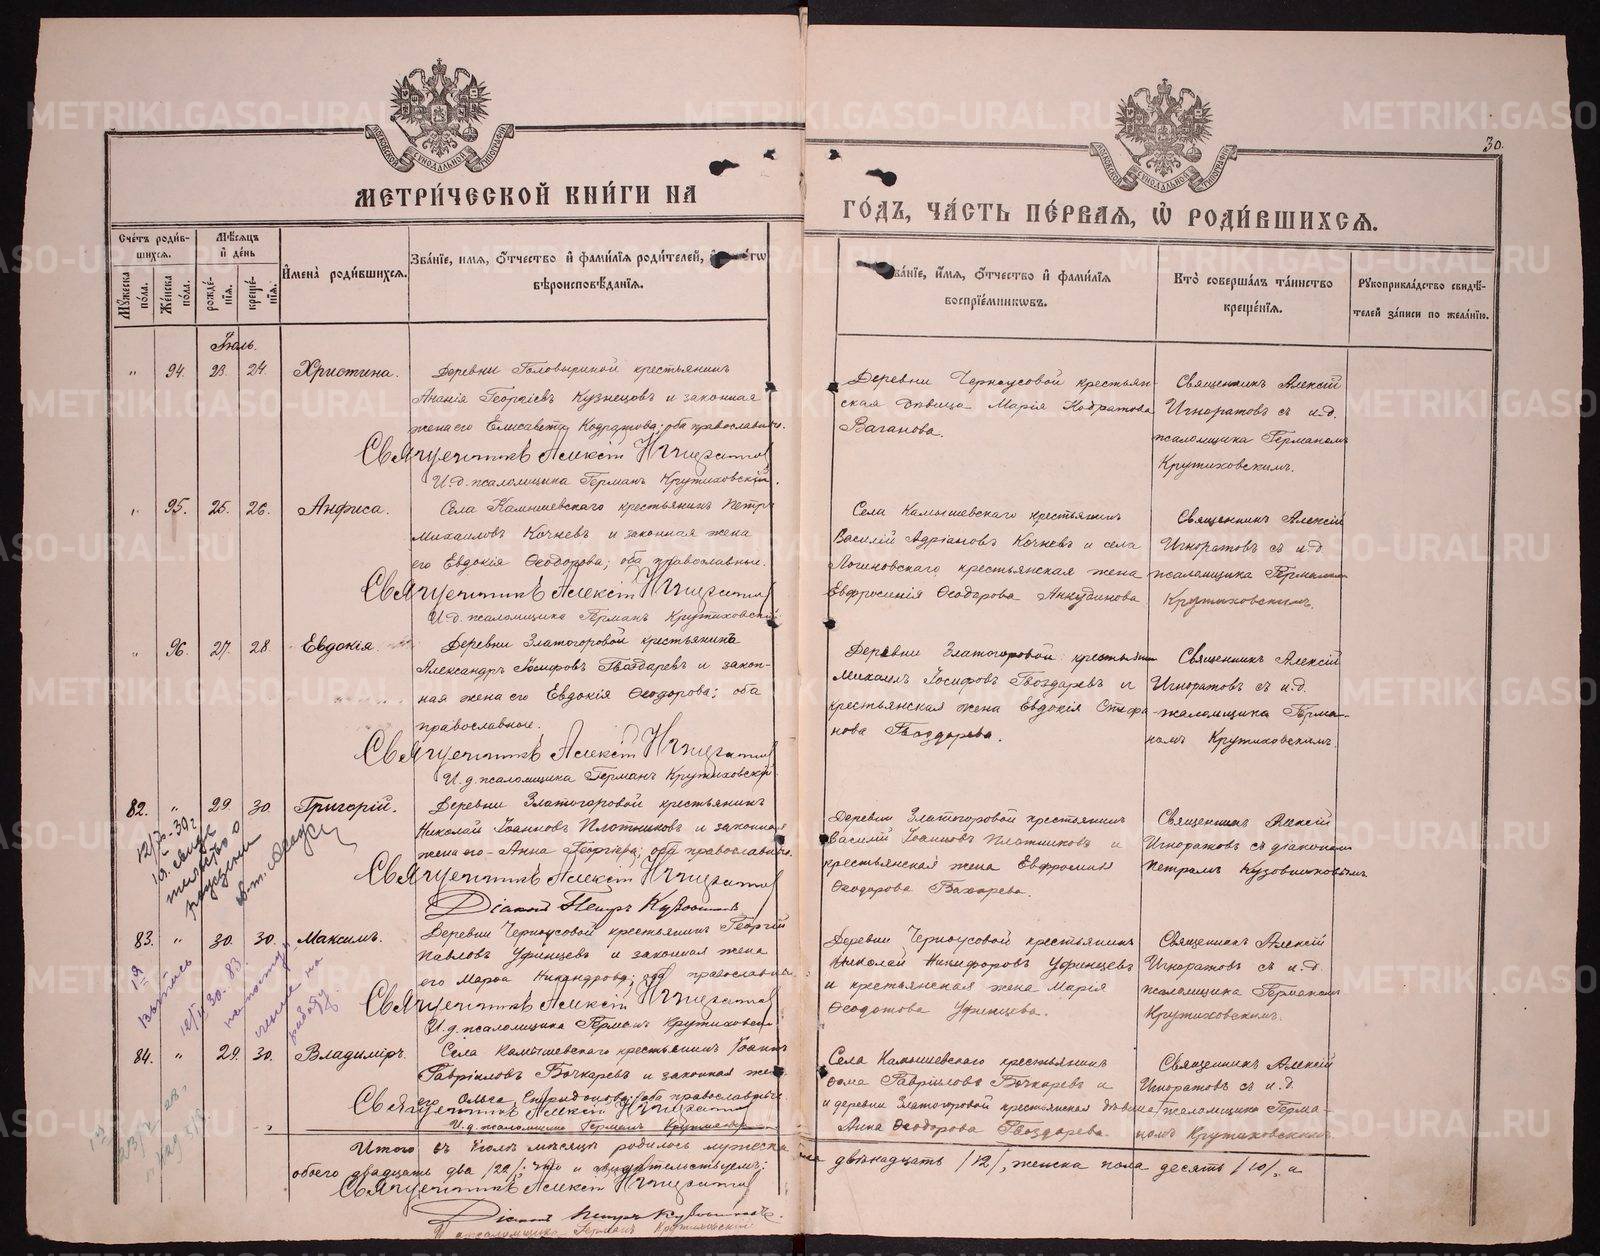 МОСКОВСКОЙ СУНОДАЛЬНОЙ ТИПОГРАФІИ
МОСКОВСКОЙ СУНОДАЛЬНОЙ ТИПОГРАФІИ
30.
МЕТРИ́ЧЕСКОЙ КНИ́ГИ НА
ГО́ДЪ, ЧА́СТЬ ПЕ́РВАЯ, Ѽ РОДИ́ВШИХСЯ.
Счетъ роди́вшихся.
Мѣсяцъ и день
Мужеска пола.
Женска пола.
рожденія.
крещенія.
Имена родившихся.
Званіе, имя, отчество и фамилія родителей, и
вѣроисповѣданія.
Званіе, имя, отчество и фамилія
воспріемниковъ.
Кто совершалъ таинство
крещенія.
Рукоприкладство свидѣ-
телей записи по желанію.
Іюль.
" 94. 23. 24. Христина.
Деревни Головыриной крестьянинъ
Ананія Георгіевъ Кузнецовъ и законная
жена его Елисавета Кодратова; оба православные.
Священникъ Алексій Игноратовъ
И.д. псаломщика Германъ Крутиховскій.
Деревни Черноусовой крестьян-
ская дѣвица Марія Кодратова
Ваганова.
Священникъ Алексій
Игноратовъ съ и.д.
псаломщика Германомъ
Крутиховскимъ.
" 95. 25. 26. Анфиса.
Села Камышевскаго крестьянинъ Петръ
Михаиловъ Кочневъ и законная жена
его Евдокія Ѳеодорова; оба православные.
Священникъ Алексій Игноратовъ
И.д. псаломщика Германъ Крутиховскій
Села Камышевскаго крестьянинъ
Василій Адріановъ Кочневъ и села
Логиновскаго крестьянская жена
Евфросинія Ѳеодорова Анкудинова
Священникъ Алексій
Игноратовъ съ и.д.
псаломщика Германомъ
Крутиховскимъ.
" 96. 27. 28. Евдокія.
Деревни Златогоровой крестьянинъ
Александръ Іосифовъ Гвоздаревъ и закон-
ная жена его Евдокія Ѳеодорова; оба
православные.
Священникъ Алексій Игноратовъ
И.д. псаломщика Германъ Крутиховскій
Деревни Златогоровой крестьянин
Михаилъ Іосифовъ Гвоздаревъ и
крестьянская жена Евдокія Стефа-
нова Гвоздарева.
Священникъ Алексій
Игноратовъ съ и.д.
псаломщика Герма-
номъ Крутиховскимъ.
82. " 29. 30. Григорій.
Деревни Златогоровой крестьянинъ
Николай Іоанновъ Плотниковъ и законная
жена его Анна Георгіева; оба православные.
Священникъ Алексій Игноратовъ
Діаконъ Петръ Кузовниковъ
Деревни Златогоровой крестьянинъ
Василій Іоанновъ Плотниковъ и
крестьянская жена Евфросинія
Ѳеодорова Вахарева.
Священникъ Алексій
Игноратовъ съ діакономъ
Петромъ Кузовниковымъ
83. " 30. 30. Максимъ.
Деревни Черноусовой крестьянинъ Георгій
Павловъ Уфинцевъ и законная жена
его Марѳа Никандрова; оба православные.
Священникъ Алексій Игноратовъ
И.д. псаломщика Германъ Крутиховскій
Деревни Черноусовой крестьянинъ
Николай Никифоровъ Уфинцевъ
и крестьянская жена Марія
Ѳеодотова Уфинцева.
Священникъ Алексій
Игноратовъ съ и.д.
псаломщика Германомъ
Крутиховскимъ.
84. " 29. 30. Владиміръ.
Села Камышевскаго крестьянинъ Іоаннъ
Гавріиловъ Бочкаревъ и законная жена
его Ольга Спиридонова; оба православные.
Священникъ Алексій Игноратовъ
И.д. псаломщика Германъ Крутиховскій
Села Камышевскаго крестьянинъ
Гавріиловъ Бочкаревъ и
и деревни Златогоровой крестьянская дѣвица
Анна Ѳеодорова Гвоздарева.
Священникъ Алексій
Игноратовъ съ и.д.
псаломщика Герма-
номъ Крутиховскимъ
Итого въ Іюлѣ мѣсяцѣ родилось мужеска
двѣнадцать /12/, женска пола десять /10/, а
обоего двадцать два /22/; что и свидѣтельствуемъ:
Священникъ Алексій Игноратовъ
Діаконъ Петръ Кузовниковъ.
И. псаломщика Германъ Крутиховскій
METRIKI.GASO-URAL.RU